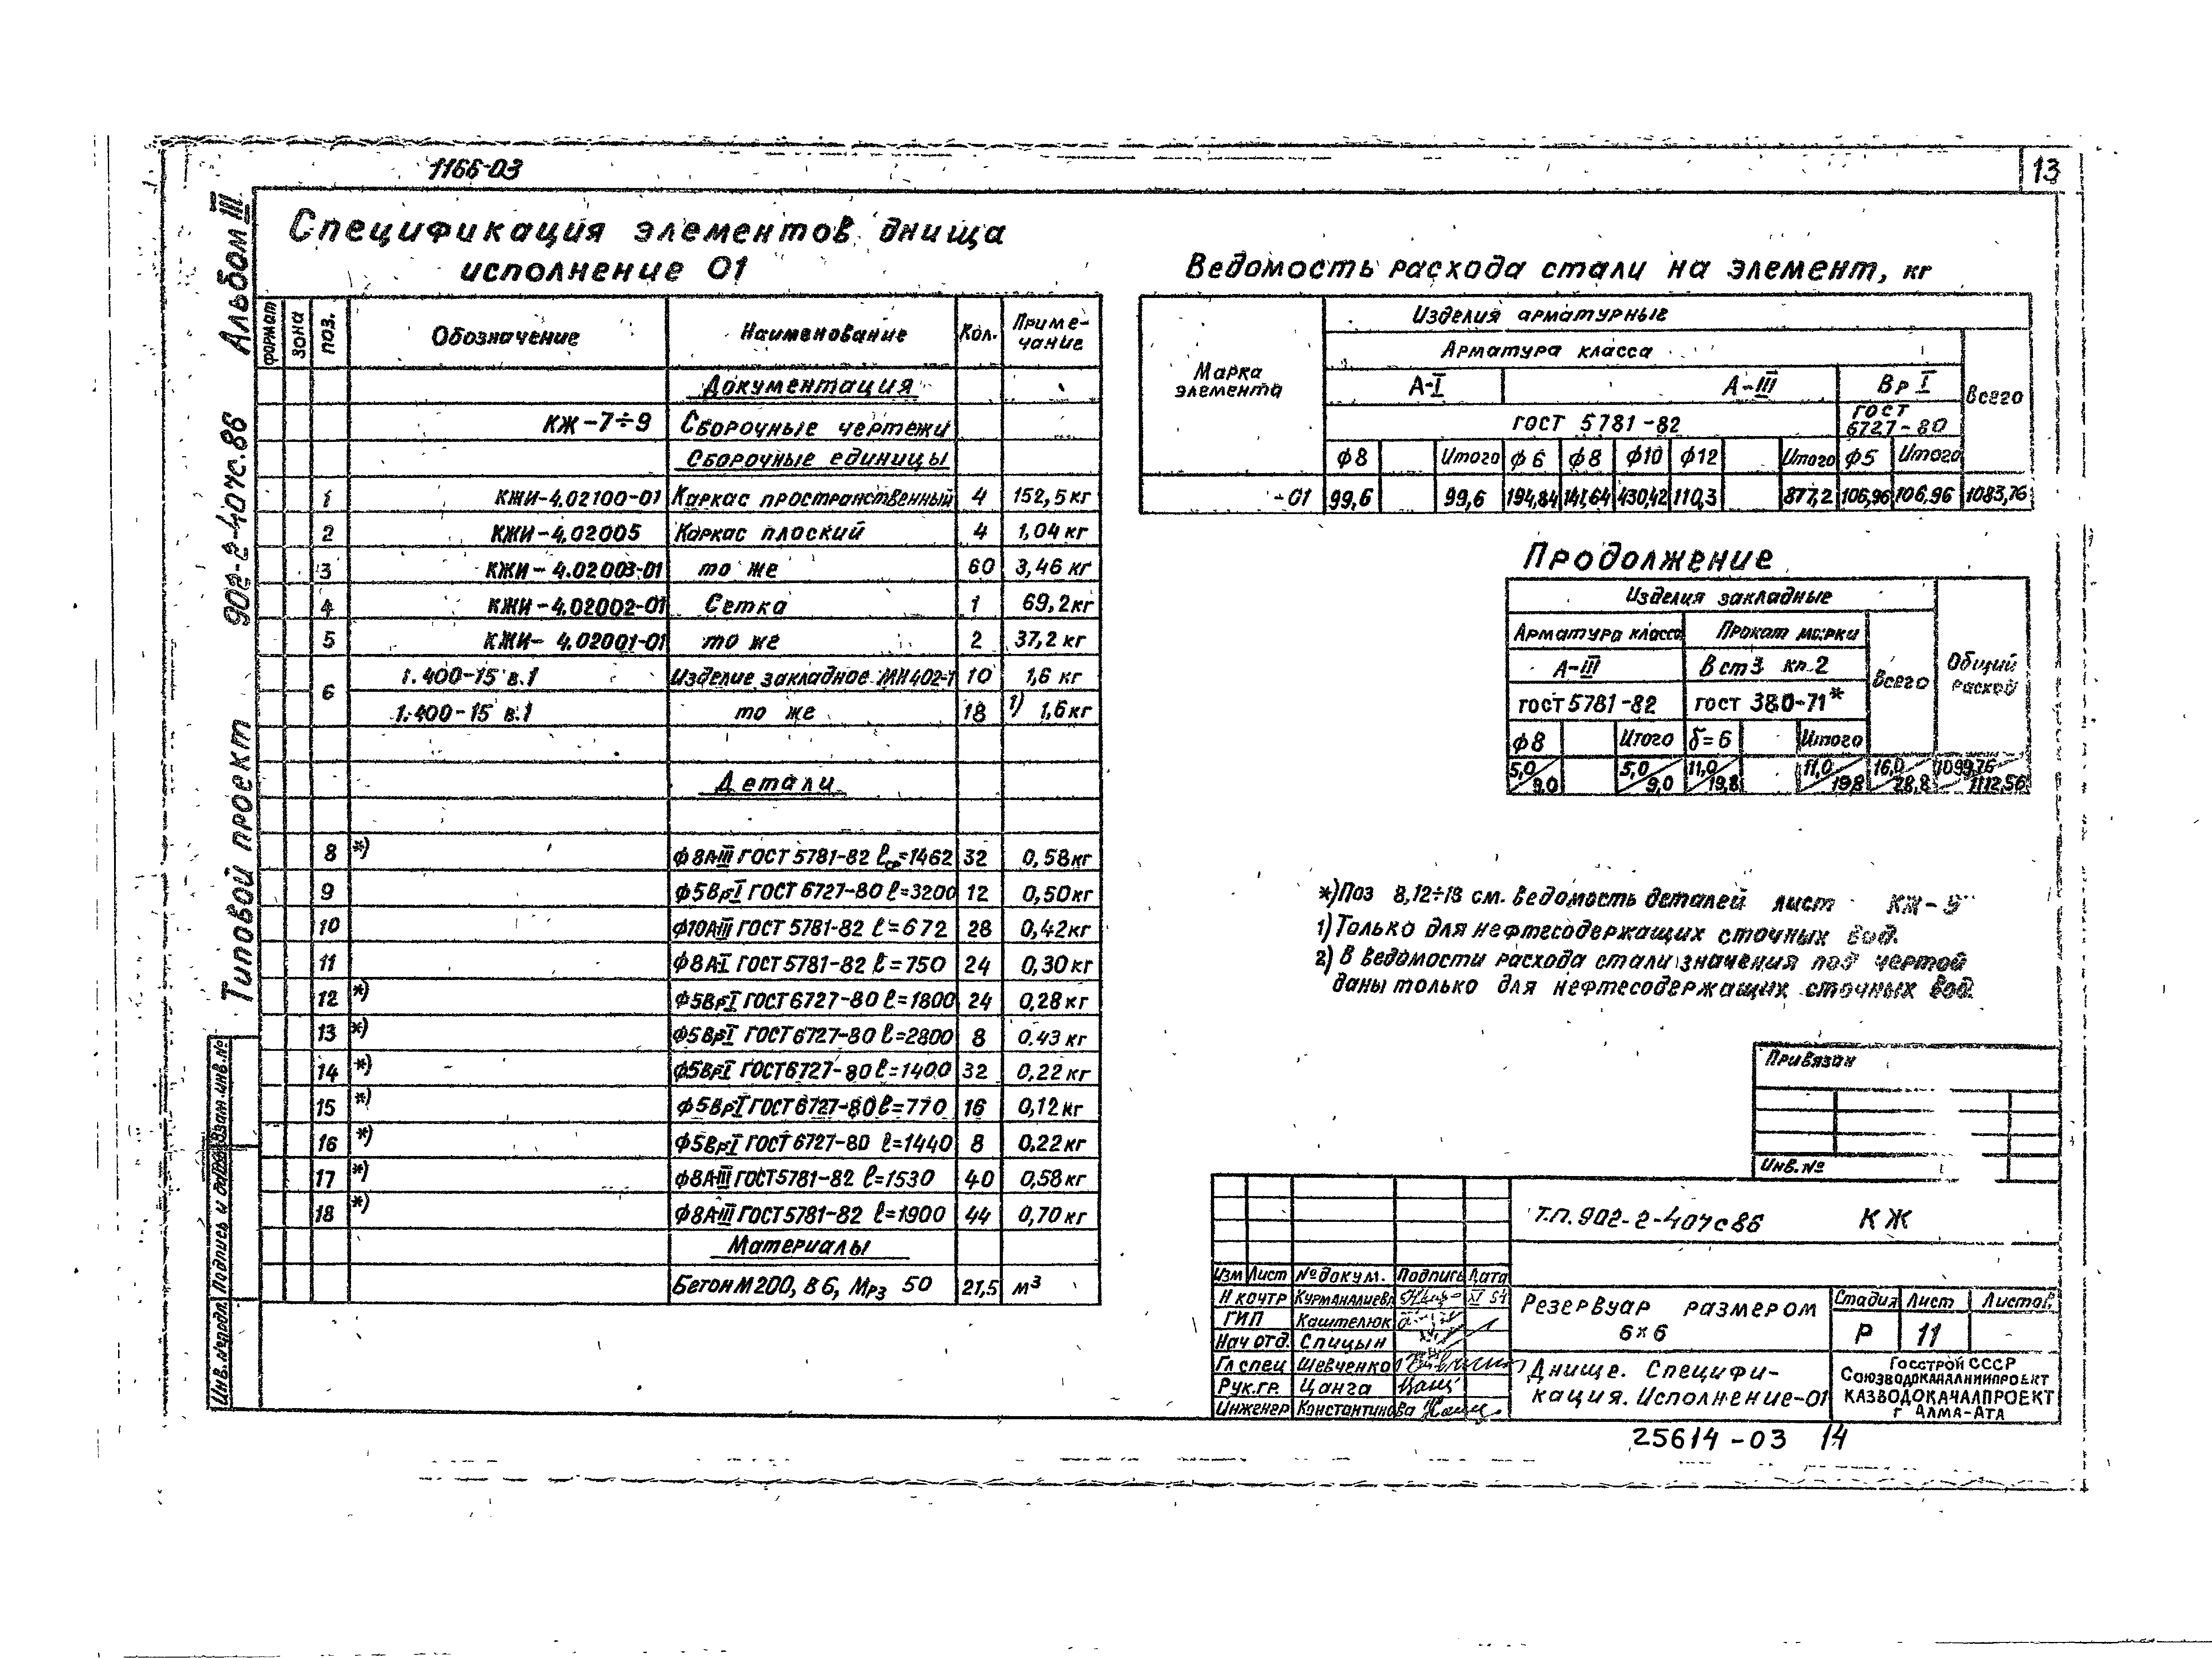 1166-03
13
Альбом III
902-2-407с.86
Типовой проект
Взам.инв.№
Подпись и дата
Инв.№подл.
Спецификация элементов днища
исполнение 01
формат зона поз. Обозначение Наименование Кол. Приме-
чание
Документация
КЖ-7÷9 Сборочные чертежи
Сборочные единицы
1 КЖИ-4.02100-01 Каркас пространственный 4 152,5 кг
2 КЖИ-4.02005 Каркас плоский 4 1,04 кг
3 КЖИ-4.02003-01 то же 60 3,46 кг
4 КЖИ-4.02002-01 Сетка 1 69,2 кг
5 КЖИ-4.02001-01 то же 2 37,2 кг
6 1.400-15 в.1 Изделие закладное МН402-1 10 1,6 кг
1.400-15 в.1 то же 18 1) 1,6 кг
Детали
8 *) ф8АIII ГОСТ 5781-82 ℓср=1462 32 0,58 кг
9 ф5ВрI ГОСТ 6727-80 ℓ=3200 12 0,50 кг
10 ф10АIII ГОСТ 5781-82 ℓ=672 28 0,42 кг
11 ф8АI ГОСТ 5781-82 ℓ=750 24 0,30 кг
12 *) ф5ВрI ГОСТ 6727-80 ℓ=1800 24 0,28 кг
13 *) ф5ВрI ГОСТ 6727-80 ℓ=2800 8 0.43 кг
14 *) ф5ВрI ГОСТ 6727-80 ℓ=1400 32 0,22 кг
15 *) ф5ВрI ГОСТ 6727-80 ℓ=770 16 0,12 кг
16 *) ф5ВрI ГОСТ 6727-80 ℓ=1440 8 0,22 кг
17 *) ф8АIII ГОСТ 5781-82 ℓ=1530 40 0,58 кг
18 *) ф8АIII ГОСТ 5781-82 ℓ=1900 44 0,70 кг
Материалы
Бетон М200, В6, Мрз 50 21,5 м³
Ведомость расхода стали на элемент, кг
Марка
элемента
Изделия арматурные
Арматура класса
Всего
А-I А-III Вр I
ГОСТ 5781-82 ГОСТ
6727-80
ф8 Итого ф6 ф8 ф10 ф12 Итого ф5 Итого
-01 99,6 99,6 194,84 141,64 430,42 110,3 877,2 106,96 106,96 1083,76
Продолжение
Изделия закладные
Арматура класса Прокат марки
Всего Общий
расход
А-III Вст3 кп 2
ГОСТ 5781-82 ГОСТ 380-71*
ф8 Итого δ=6 Итого
5,0/9,0 5,0/9,0 11,0/19,8 11,0/19,8 16,0/28,8 1099,76/1112,56
*) Поз 8,12÷18 см. ведомость деталей лист КЖ-9
1) Только для нефтесодержащих сточных вод.
2) В ведомости расхода стали значения под чертой
даны только для нефтесодержащих сточных вод.
Привязан
Инв.№
Т.П.902-2-407с86 КЖ
Изм Лист № докум. Подпись Дата
Н контр Курманалиева
ГИП Каштелюк
Нач отд. Спицын
Гл спец Шевченко
Рук.гр. Цанга
Инженер Константинова
Резервуар размером
6×6
Стадия Лист Листов
Р 11 -
Днище. Специфи-
кация. Исполнение-01
Госстрой СССР
Союзводоканалниипроект
КАЗВОДОКАНАЛПРОЕКТ
г Алма-Ата
25614-03 14